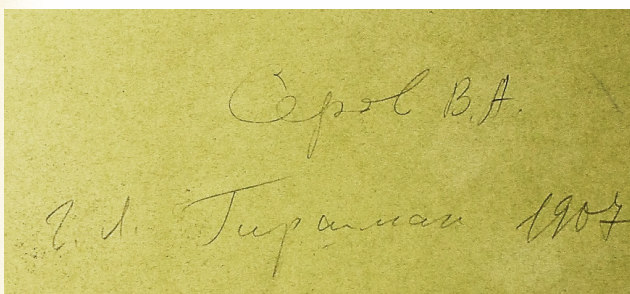 Серов В.А.
Г. Л. Гиршман 1907